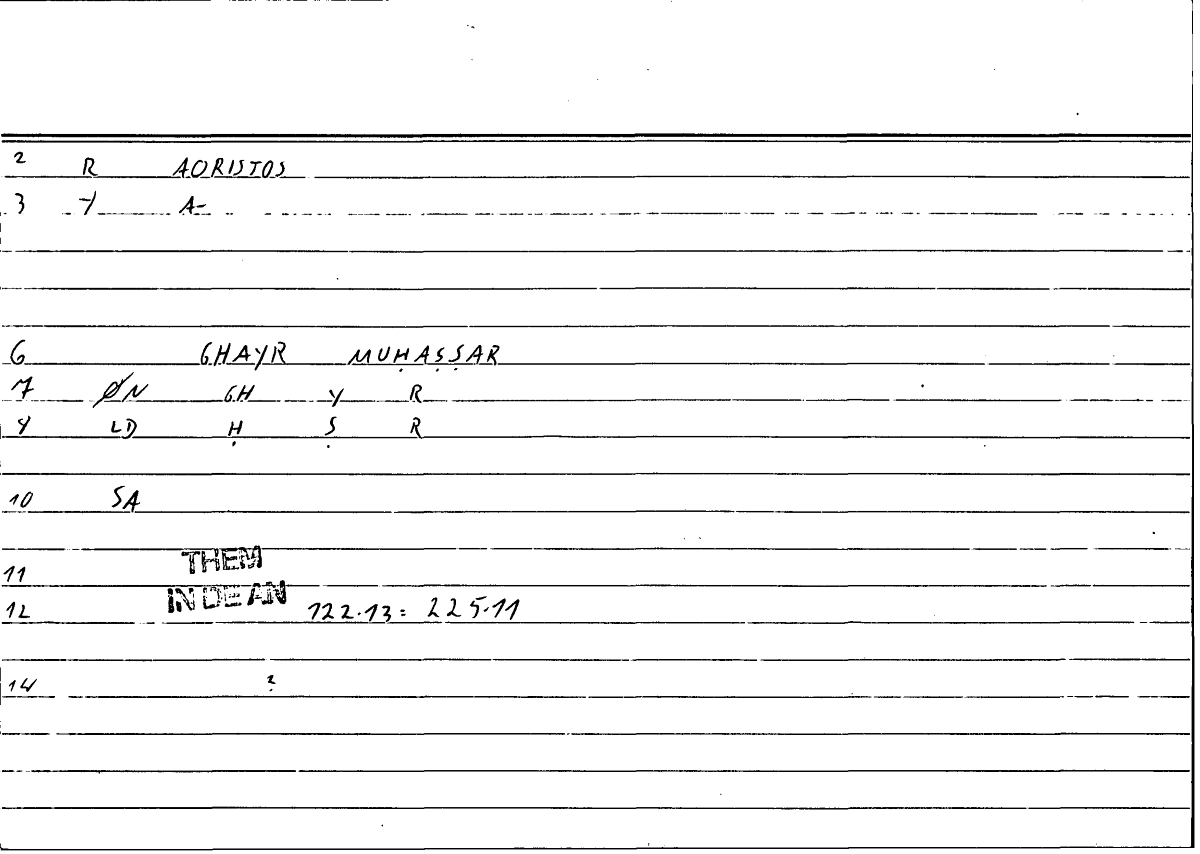 2 R AORISTOS
3 -/ A-
6 GHAYR MUḤAṢṢAR
7 ØN GH Y R
8 LD Ḥ Ṣ R
10 SA
11 THEM
12 IN DE AN 122.13 = 225.11
14